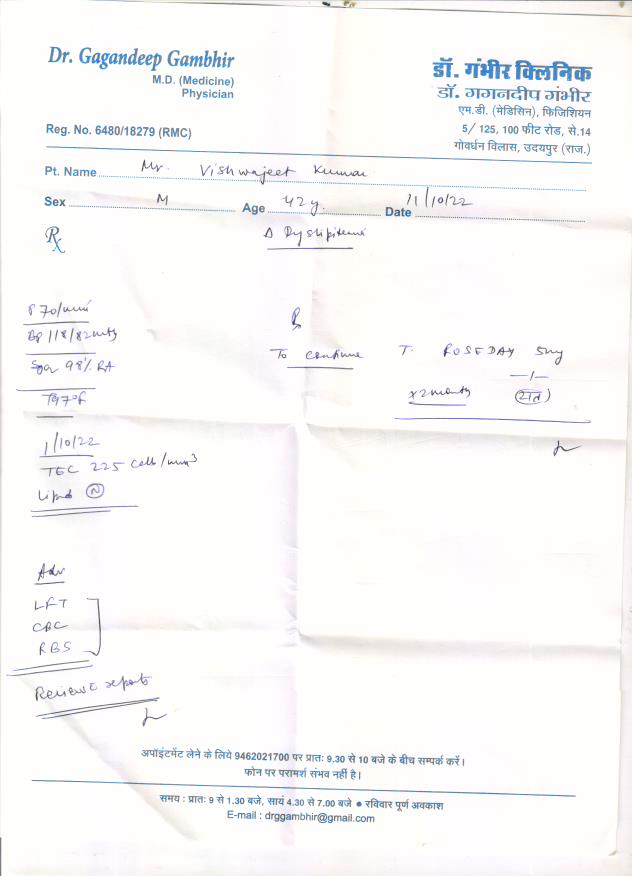 Dr. Gagandeep Gambhir
M.D. (Medicine)
Physician
Reg. No. 6480/18279 (RMC)
डॉ. गंभीर क्लिनिक
डॉ. गगनदीप गंभीर
एम.डी. (मेडिसिन), फिजिशियन
5/ 125, 100 फीट रोड, से.14
गोवर्धन विलास, उदयपुर (राज.)
Pt. Name Mr. Vishwajeet Kumar
Sex M Age 42y. Date 11/10/22
Rx
Δ Dyslipidemia
P 70/min
BP 118/82
98% RA
T 97°F
1/10/22
TEC 225 cells/mm3
Lipid N
Rx
To continue T. ROSEDAY 5mg
—/—
x 2 months
Adv
LFT
CBC
RBS
Review c reports
अपॉइंटमेंट लेने के लिये 9462021700 पर प्रातः 9.30 से 10 बजे के बीच सम्पर्क करें।
फोन पर परामर्श संभव नहीं है।
समय : प्रातः 9 से 1.30 बजे, सायं 4.30 से 7.00 बजे ● रविवार पूर्ण अवकाश
E-mail : drggambhir@gmail.com